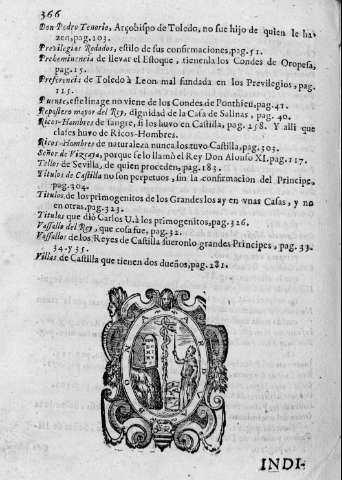 366
Don Pedro Tenorio, Arçobispo de Toledo, no fue hijo de quien le ha-
zen, pag.103.
Previlegios Rodados, estilo de sus confirmaciones, pag.51.
Prebeminencia de llevar el Estoque, tienenla los Condes de Oropesa,
pag.15.
Preferencia de Toledo à Leon mal fundada en los Previlegios, pag.
115.
Puente, este linage no viene de los Condes de Ponthieu, pag.41.
Repostero mayor del Rey, dignidad de la Casa de Salinas, pag. 40.
Ricos-Hombres de sangre, si los huvo en Castilla, pag. 258. Y alli que
clases huvo de Ricos-Hombres.
Ricos-Hombres de naturaleza nunca los tuvo Castilla, pag.303.
Señor de Vizcaya, porque se lo llamò el Rey Don Alonso XI. pag.117.
Tellos de Sevilla, de quien proceden, pag.183.
Titulos de Castilla no son perpetuos, sin la confirmacion del Principe,
pag.304.
Titulos de los primogenitos de los Grandes los ay en unas Casas, y no
en otras, pag.323.
Titulos que diò Carlos V. à los primogenitos, pag.326.
Vassallo del Rey, que cosa fue, pag.32.
Vassallos de los Reyes de Castilla fueronlo grandes Principes, pag. 33.
34. y 35.
Villas de Castilla que tienen dos dueños, pag.281.
INDI-